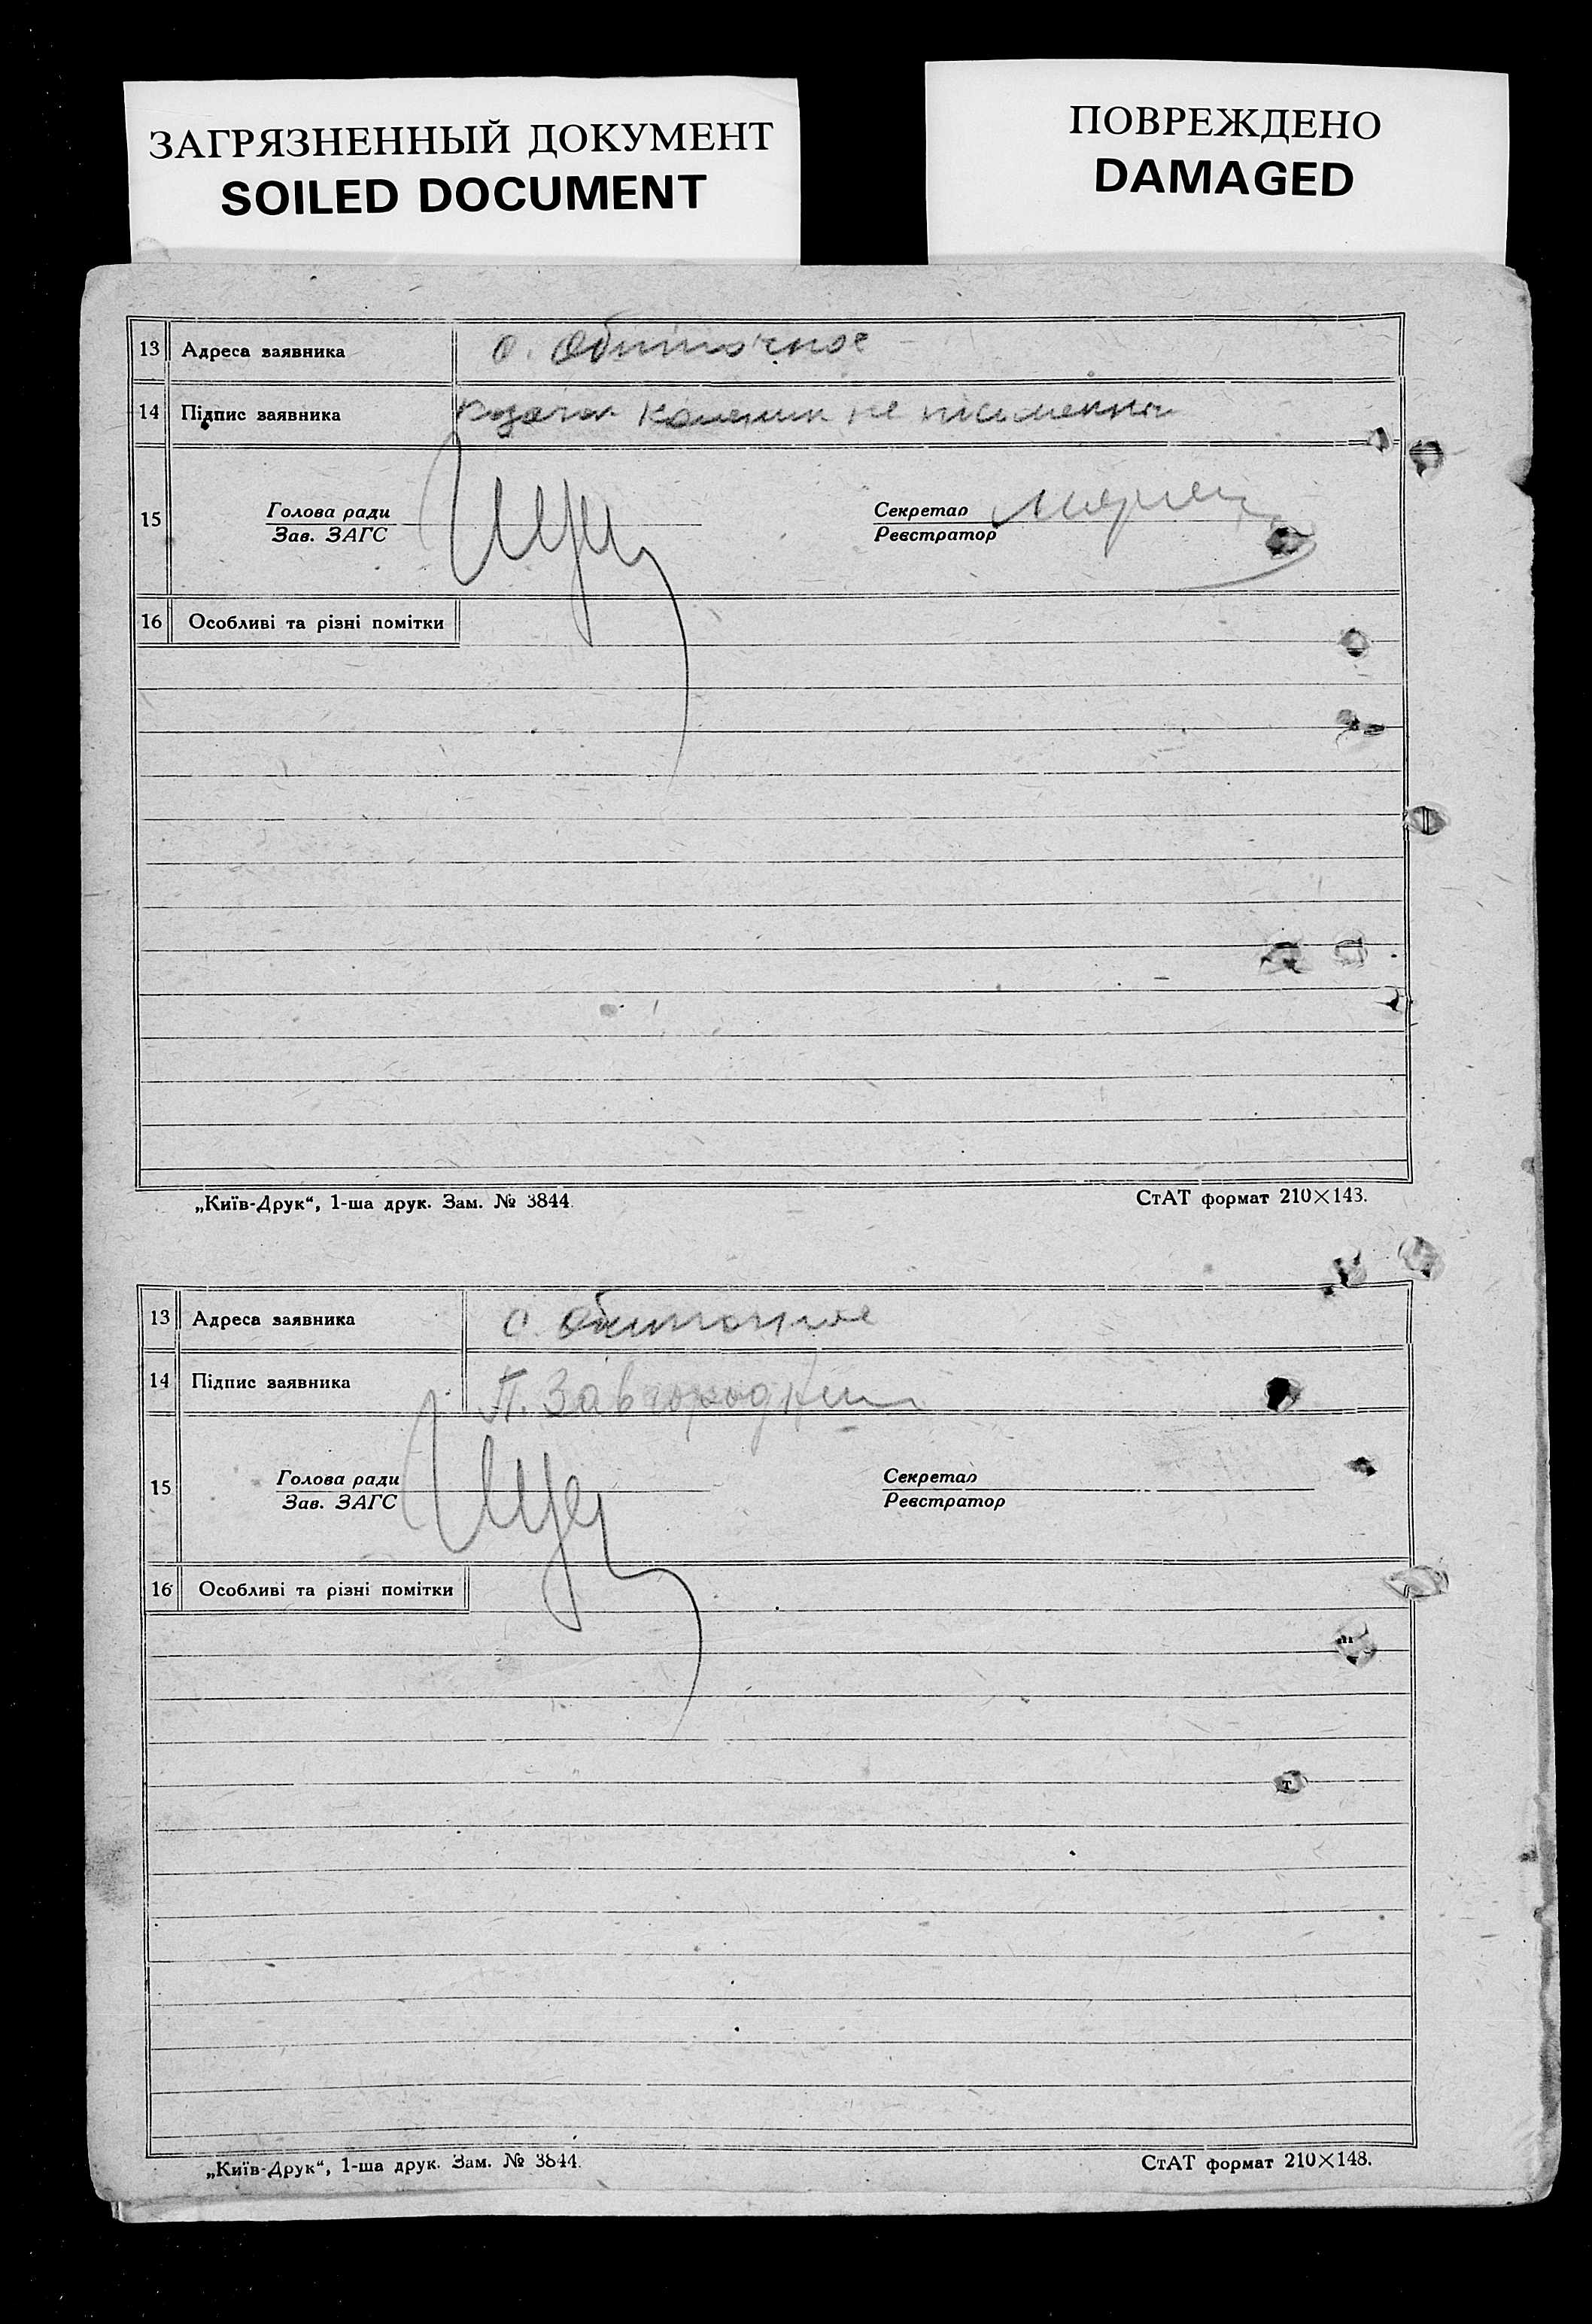 ЗАГРЯЗНЕННЫЙ ДОКУМЕНТ
SOILED DOCUMENT
ПОВРЕЖДЕНО
DAMAGED
13 Адреса заявника с. Обиточное
14 Підпис заявника Козачок не письменний
15 Голова ради Секретар
Зав. ЗАГС Реєстратор
16 Особливі та різні помітки
„Київ-Друк“, 1-ша друк. Зам. № 3844 СтАТ формат 210×143.
13 Адреса заявника с. Обиточное
14 Підпис заявника П. Завгородний
15 Голова ради Секретар
Зав. ЗАГС Реєстратор
16 Особливі та різні помітки
„Київ-Друк“, 1-ша друк. Зам. № 3844. СтАТ формат 210×148.